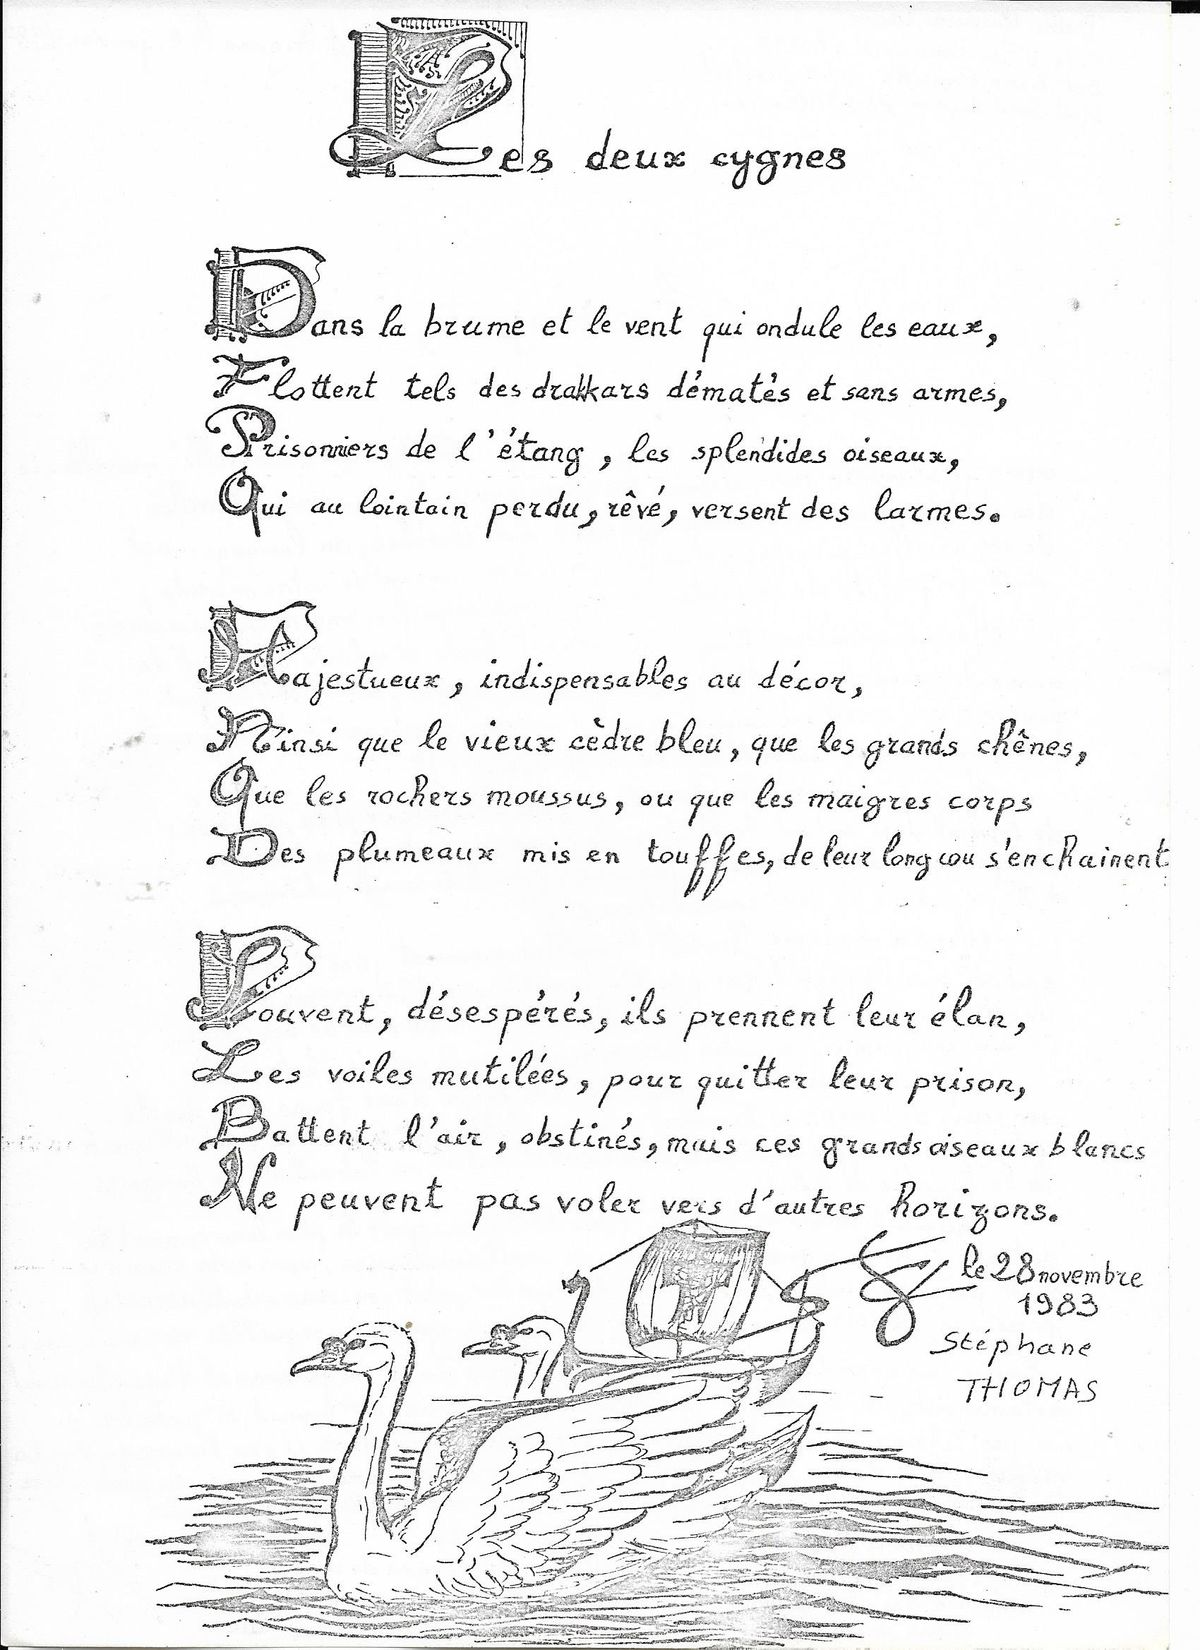 Les deux cygnes
Dans la brume et le vent qui ondule les eaux,
Flottent tels des drakkars dématés et sans armes,
Prisonniers de l'étang, les splendides oiseaux,
Qui au lointain perdu, rêvé, versent des larmes.
Majestueux, indispensables au décor,
Ainsi que le vieux cèdre bleu, que les grands chênes,
Que les rochers moussus, ou que les maigres corps
Des plumeaux mis en touffes, de leur long cou s'enchainent
Souvent, désespérés, ils prennent leur élan,
Les voiles mutilées, pour quitter leur prison,
Battent l'air, obstinés, mais ces grands oiseaux blancs
Ne peuvent pas voler vers d'autres horizons.
le 28 novembre
1983
Stéphane
THOMAS